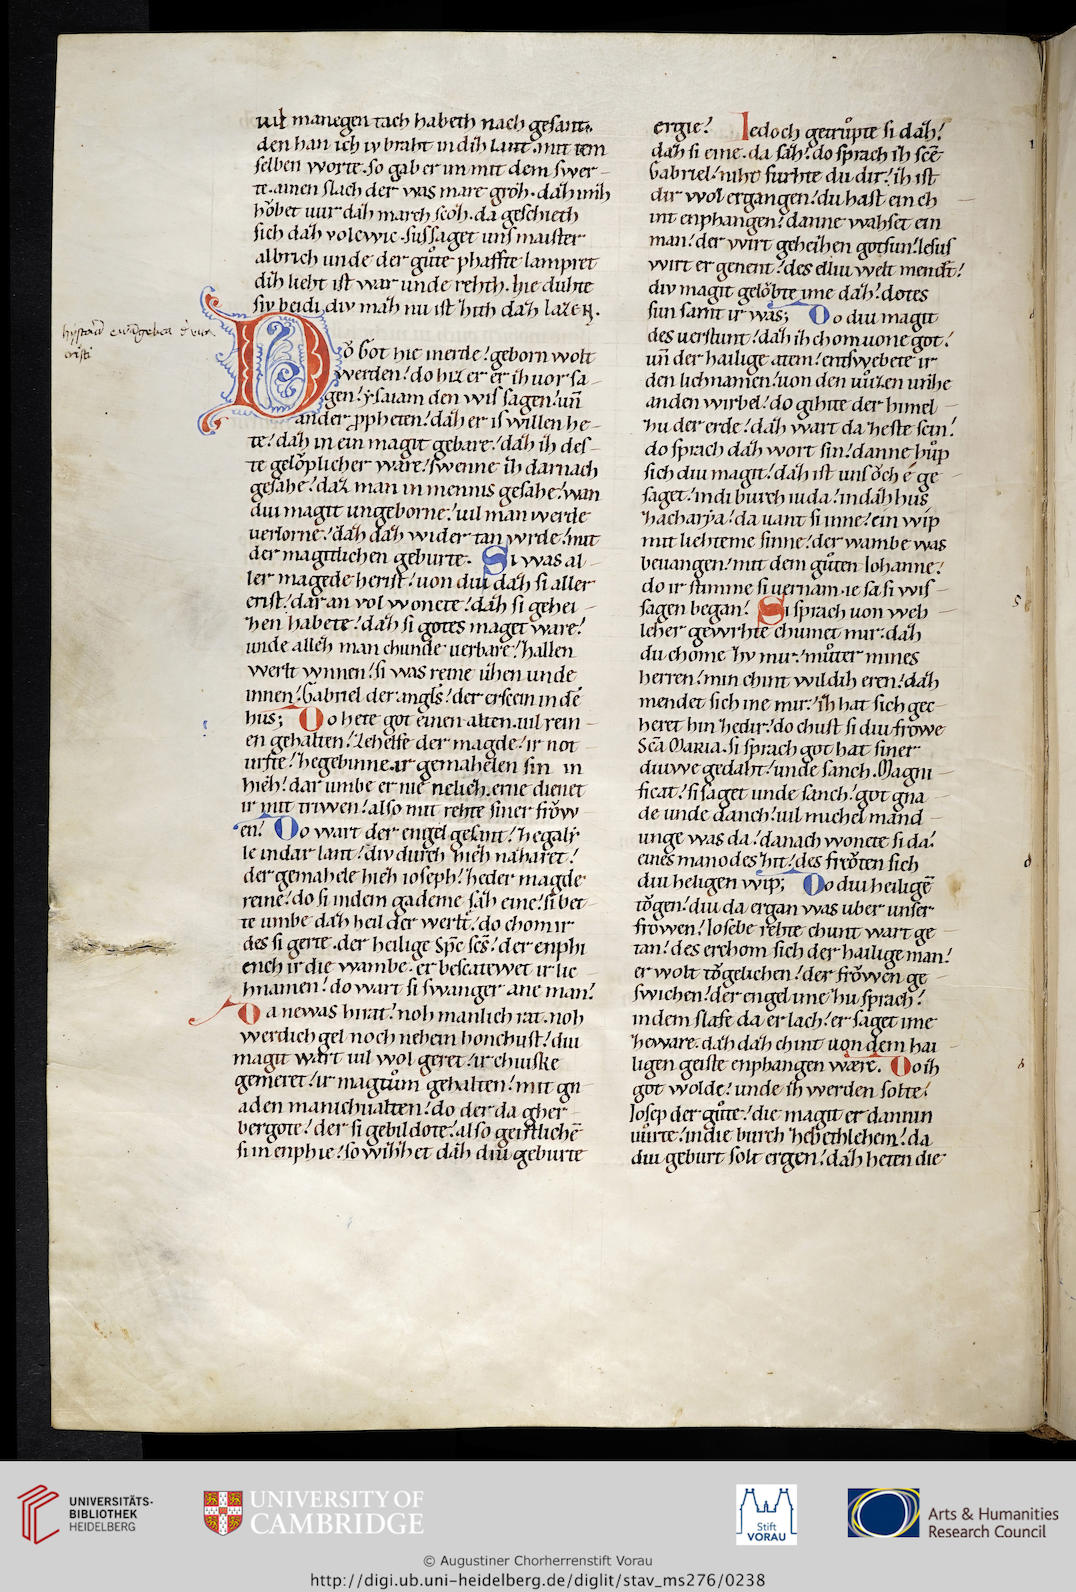 uil manegen tach habeth nach gesant.
den han ich iv braht in dih lant. mit tem
selben worte. so gab er im mit dem swer-
te. ainen slach der was mare groh. dah imih
hŏbet uur dah march scoh. da geschieth
sich dah volcwic. sus saget uns maister
albrich unde der gůte phaffte lampret
dih lieht ist war unde rehth. hie duhte
siv beidi. div mah nu ist huth dah lazeɴ.
DO Got hie inerde! geborn wolt
werden! do hiz er er ih uor sa-
gen! ysaiam den wissagen! uñ
ander ꝓpheten! dah er is willen he-
te! dah in ein magit gebare! dah ih des-
te gelŏplicher ware! swenne ih dar nach
gesahe! daz man in mennis gesahe! wan
diu magit ungeborne! uil man werde
uerlorne! dah dah wider tan wrde! mit
der magitlichen geburte. Si was al-
ler magede herist! uon diu dah si aller
erist! dar an vol wonete! dah si gehei-
hen habete! dah si gotes maget ware!
unde alleh man chunde uerbare! hallen
werlt wnnen! si was reine uhen unde
innen! Gabriel der angls! der erscein in dē
hus; Do hete got einen alten. uil rein-
en gehalten! zehelfe der magde! ir not-
urfte! hegebinne. ir gemahelen sin in
hieh! dar umbe er nie nelieh. erne dienet
ir mit triwen! also mit rehte siner frŏw-
en! Do wart der engel gesant! hegaly-
le indar lant! div durch hieh naharet!
der gemahele hieh ioseph! heder magde
reine! do si indem gademe sah eine! si bet-
te umbe dah heil der werlt! do chom ir
des si gerte. der heilige Spc̄ scs̄! der enphi
ench ir die wambe. er bescatewet ir lic-
hnamen! do wart si swanger ane man!
Da newas hirat! noh manlich rat. noh
werdich gel noch nehein honchust! diu
magit wart uil wol geret! ir chuiske
gemeret! ir magtům gehalten! mit gn-
aden manichualten! do der da gher-
bergote! der si gebildote! also geistlichē
si in enphie! so wihhet dah diu geburte
ergie! Iedoch getrůpte si dah!
dah si eine. da sah! do sprach ih scē
Gabriel! niht furhte du dir! ih ist
dir wol ergangen! du hast ein ch-
int enphangen! danne wahset ein
man! der wirt geheihen gotsun! Iesus
wirt er genent! des elliu welt mendt̄!
div magit gelŏbte ime dah! dotes
sun samt ir was; Do diu magit
des uerstunt! dah ih chom uone got!
uñ der hailige atem! entswebete ir
den lichnamen! uon den uůzen unhe
anden wirbel! do gihite der himel-
hu der erde! dah wart da heste sein!
do sprach dah wort sin! danne hůp
sich diu magit! dah ist uns ŏch é ge-
saget! indi burch iuda! indah hus
hacharẏa! da uant si inne! ein wip
mit liehteme sinne! der wambe was
beuangen! mit dem gůten Iohanne!
do ir stimme si uernam. ie sa si wis-
sagen began! Si sprach uon weh-
lcher gewrhte chumet mir. dah
du chome hv mir! můter mines
herren! min chint wil dih eren! dah
mendet sich ine mir! ih hat sich gec-
heret hin hedir! do chust si diu frowe
Scā Maria. si sprach got hat siner
diuwe gedaht! unde sanch. Magni-
ficat! si saget unde sanch! got gna-
de unde danch! uil michel mand-
unge was da! danach wonete si da!
eines manodes hit! des frŏten sich
diu heligen wip; Do diu heiligē
tŏgen! diu da ergan was uber unser
frowen! Iosebe rehte chunt wart ge-
tan! des erchom sich der hailige man!
er wolt tŏgelichen! der frŏwen ge-
swichen! der engel ime hu sprach!
indem slafe da er lach! er saget ime
heware. dah dah chint uon dem hai-
ligen geiste enphangen wære. Do ih
got wolde! unde ih werden solte!
Iosep der gůte! die magit er dannin
uůrte! indie burch hebethlehem! da
diu geburt solt ergen! dah heten die
UNIVERSITÄTS-
BIBLIOTHEK
HEIDELBERG
UNIVERSITY OF
CAMBRIDGE
Stift
VORAU
Arts & Humanities
Research Council
© Augustiner Chorherrenstift Vorau
http://digi.ub.uni-heidelberg.de/diglit/stav_ms276/0238